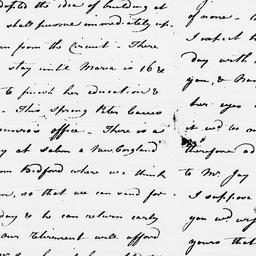 adopted the idea of building at
shall pursue immediately up-
rn from the Circuit. There
stay until Maria is 16 &
to finish her education &
. This Spring Peter leaves
office. There is a
y at Salem a New England
om Bedford where we think
on, so that we can send for
day & he can return early
our retirement will afford
of none.
I expect h
day with
you, &
her eyes
it wd. be m
therefore ad
to Mr. Jay
I suppose
you wd.
yours that